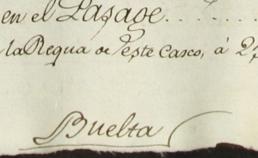 en el Pasage........
la Regua de este Casco, á 25
Buelta